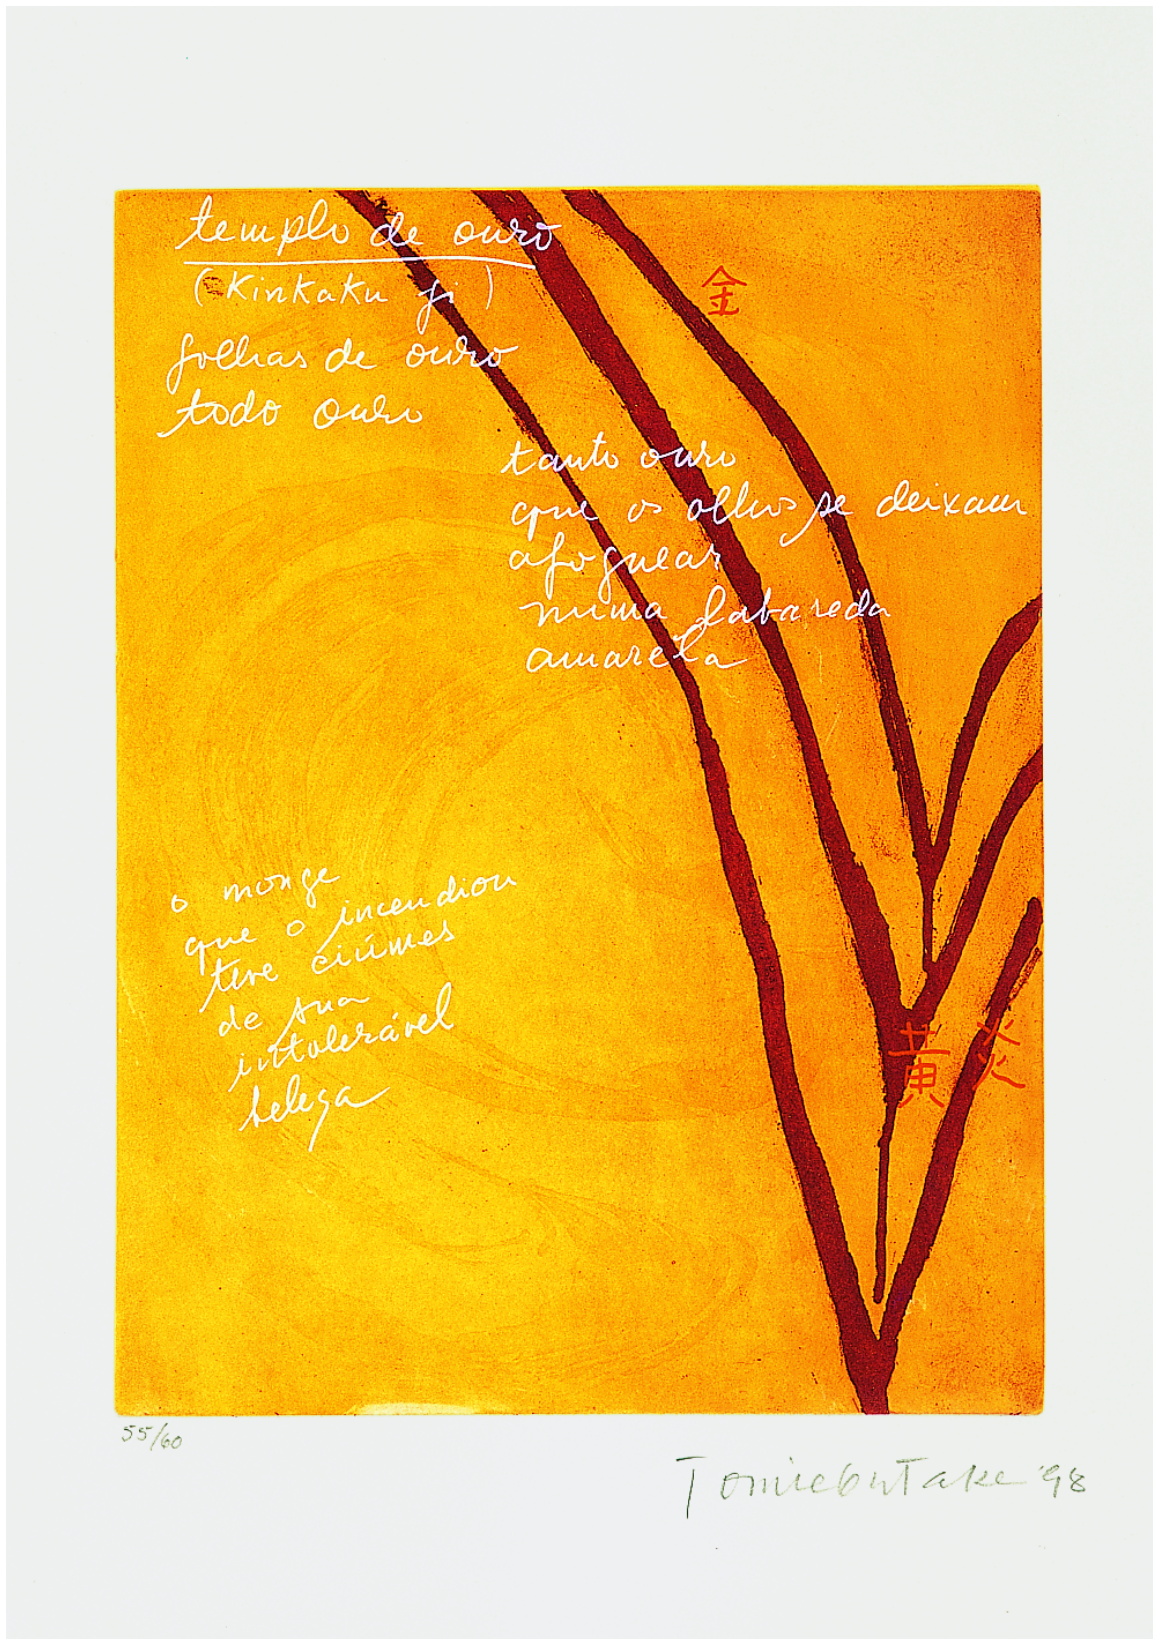 templo de ouro
(Kinkaku ji)
folhas de ouro
todo ouro
金
tanto ouro
que os olhos se deixam
afoguear
numa labareda
amarela
o monge
que o incendiou
teve ciúmes
de sua
intolerável
beleza
黄 炎
55/60
Tomie Ohtake '98